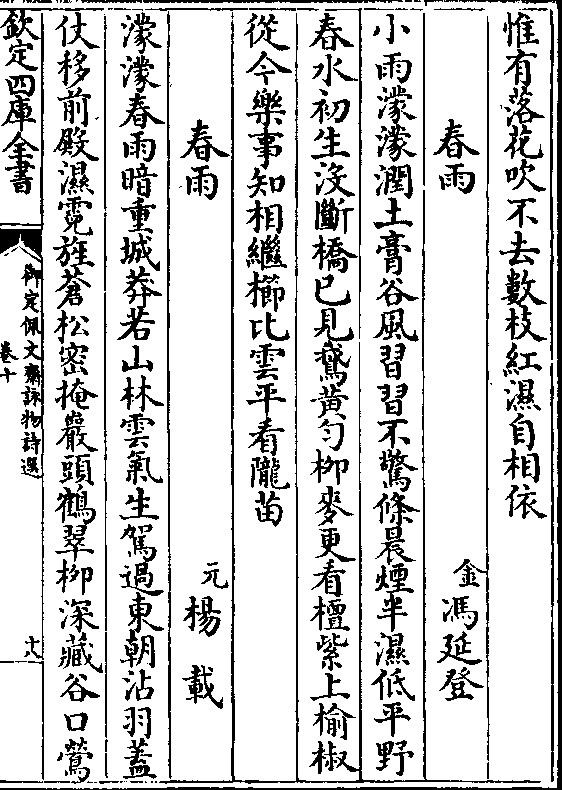 惟有落花吹不去數枝紅濕自相依
春雨 金馮延登
小雨濛濛潤土膏谷風習習不驚條晨煙半濕低平野
春水初生没斷橋已見鵞黄匀柳麥更看檀紫上榆椒
從今樂事知相繼櫛比雲平看隴苗
春雨 元楊載
濛濛春雨暗重城莽若山林雲氣生駕過東朝沾羽蓋
仗移前殿濕霓旌蒼松密掩巖頭鶴翠柳深藏谷口鶯
欽定四庫全書
御定佩文齋詠物詩選
卷十
十八